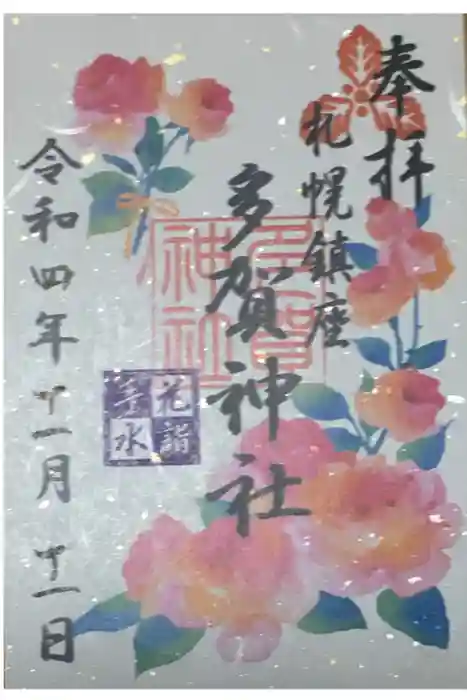 奉拝
札幌鎮座
多賀神社
多賀
神社
花詣
水
令和四年十一月十一日